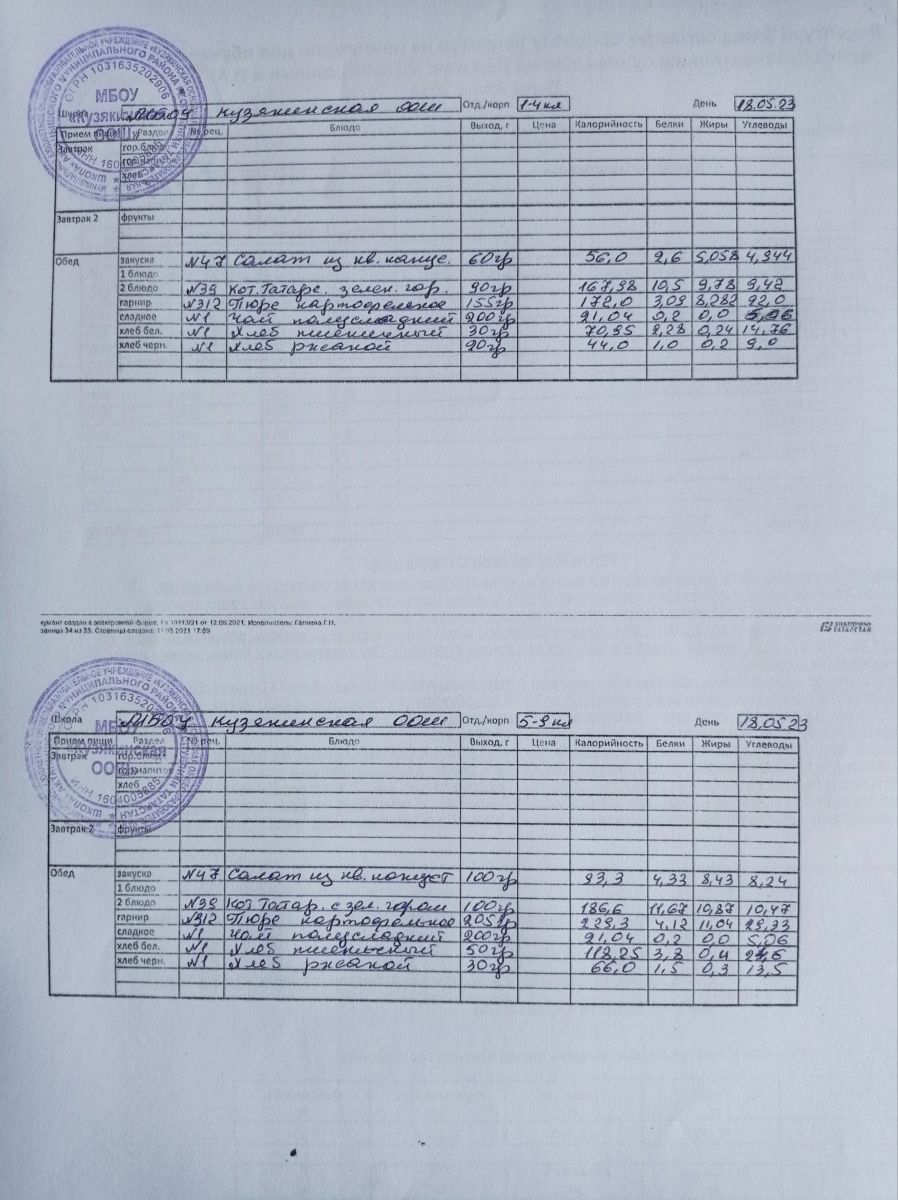 Школа МБОУ Кузякинская ООШ Отд./корп 1-4 кл День 18.05.23
Прием пищи Раздел № рец. Блюдо Выход, г Цена Калорийность Белки Жиры Углеводы
Завтрак гор.блюдо
хлеб
Завтрак 2 фрукты
Обед закуска №47 Салат из кв. капус. 60гр 56,0 2,6 5,058 4,944
1 блюдо
2 блюдо №39 Кот. Татарс. зелен. гор. 90гр 167,98 10,5 9,78 9,42
гарнир №312 Пюре картофельное 155гр 172,0 3,09 8,282 22,0
сладкое №1 Чай полусладкий 200гр 21,04 0,2 0,0 5,06
хлеб бел. №1 Хлеб пшеничный 30гр 70,95 2,28 0,24 14,76
хлеб черн. №1 Хлеб ржаной 20гр 44,0 1,0 0,2 9,0
МБОУ
«Кузякинская
ОГРН 1031635202906
кумент создан в электронной форме. № 10113/21 от 12.08.2021. Исполнитель: Галиева Г.Н.
раница 34 из 35. Страница создана: 11.08.2021 17:09
ЭЛЕКТРОННЫЙ
ТАТАРСТАН
Школа МБОУ Кузякинская ООШ Отд./корп 5-9 кл День 18.05.23
Прием пищи Раздел № рец. Блюдо Выход, г Цена Калорийность Белки Жиры Углеводы
Завтрак гор.блюдо
гор.напиток
хлеб
Завтрак 2 фрукты
Обед закуска №47 Салат из кв. капуст 100гр 93,3 4,33 8,43 8,24
1 блюдо
2 блюдо №39 Кот. Татар. с зел. горош 100гр 186,6 11,67 10,87 10,47
гарнир №312 Пюре картофельное 205гр 229,3 4,12 11,04 29,33
сладкое №1 Чай полусладкий 200гр 21,04 0,2 0,0 5,06
хлеб бел. №1 Хлеб пшеничный 50гр 118,25 3,8 0,4 24,6
хлеб черн. №1 Хлеб ржаной 30гр 66,0 1,5 0,3 13,5
МБОУ
«Кузякинская
ООШ»